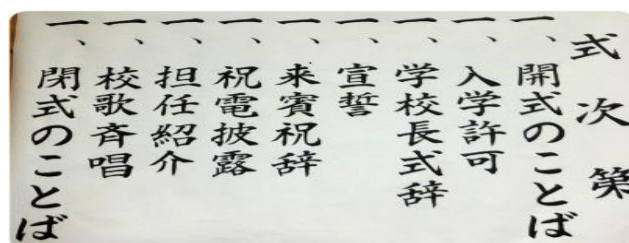 式次第
一、開式のことば
一、入学許可
一、学校長式辞
一、宣誓
一、来賓祝辞
一、祝電披露
一、担任紹介
一、校歌斉唱
一、閉式のことば